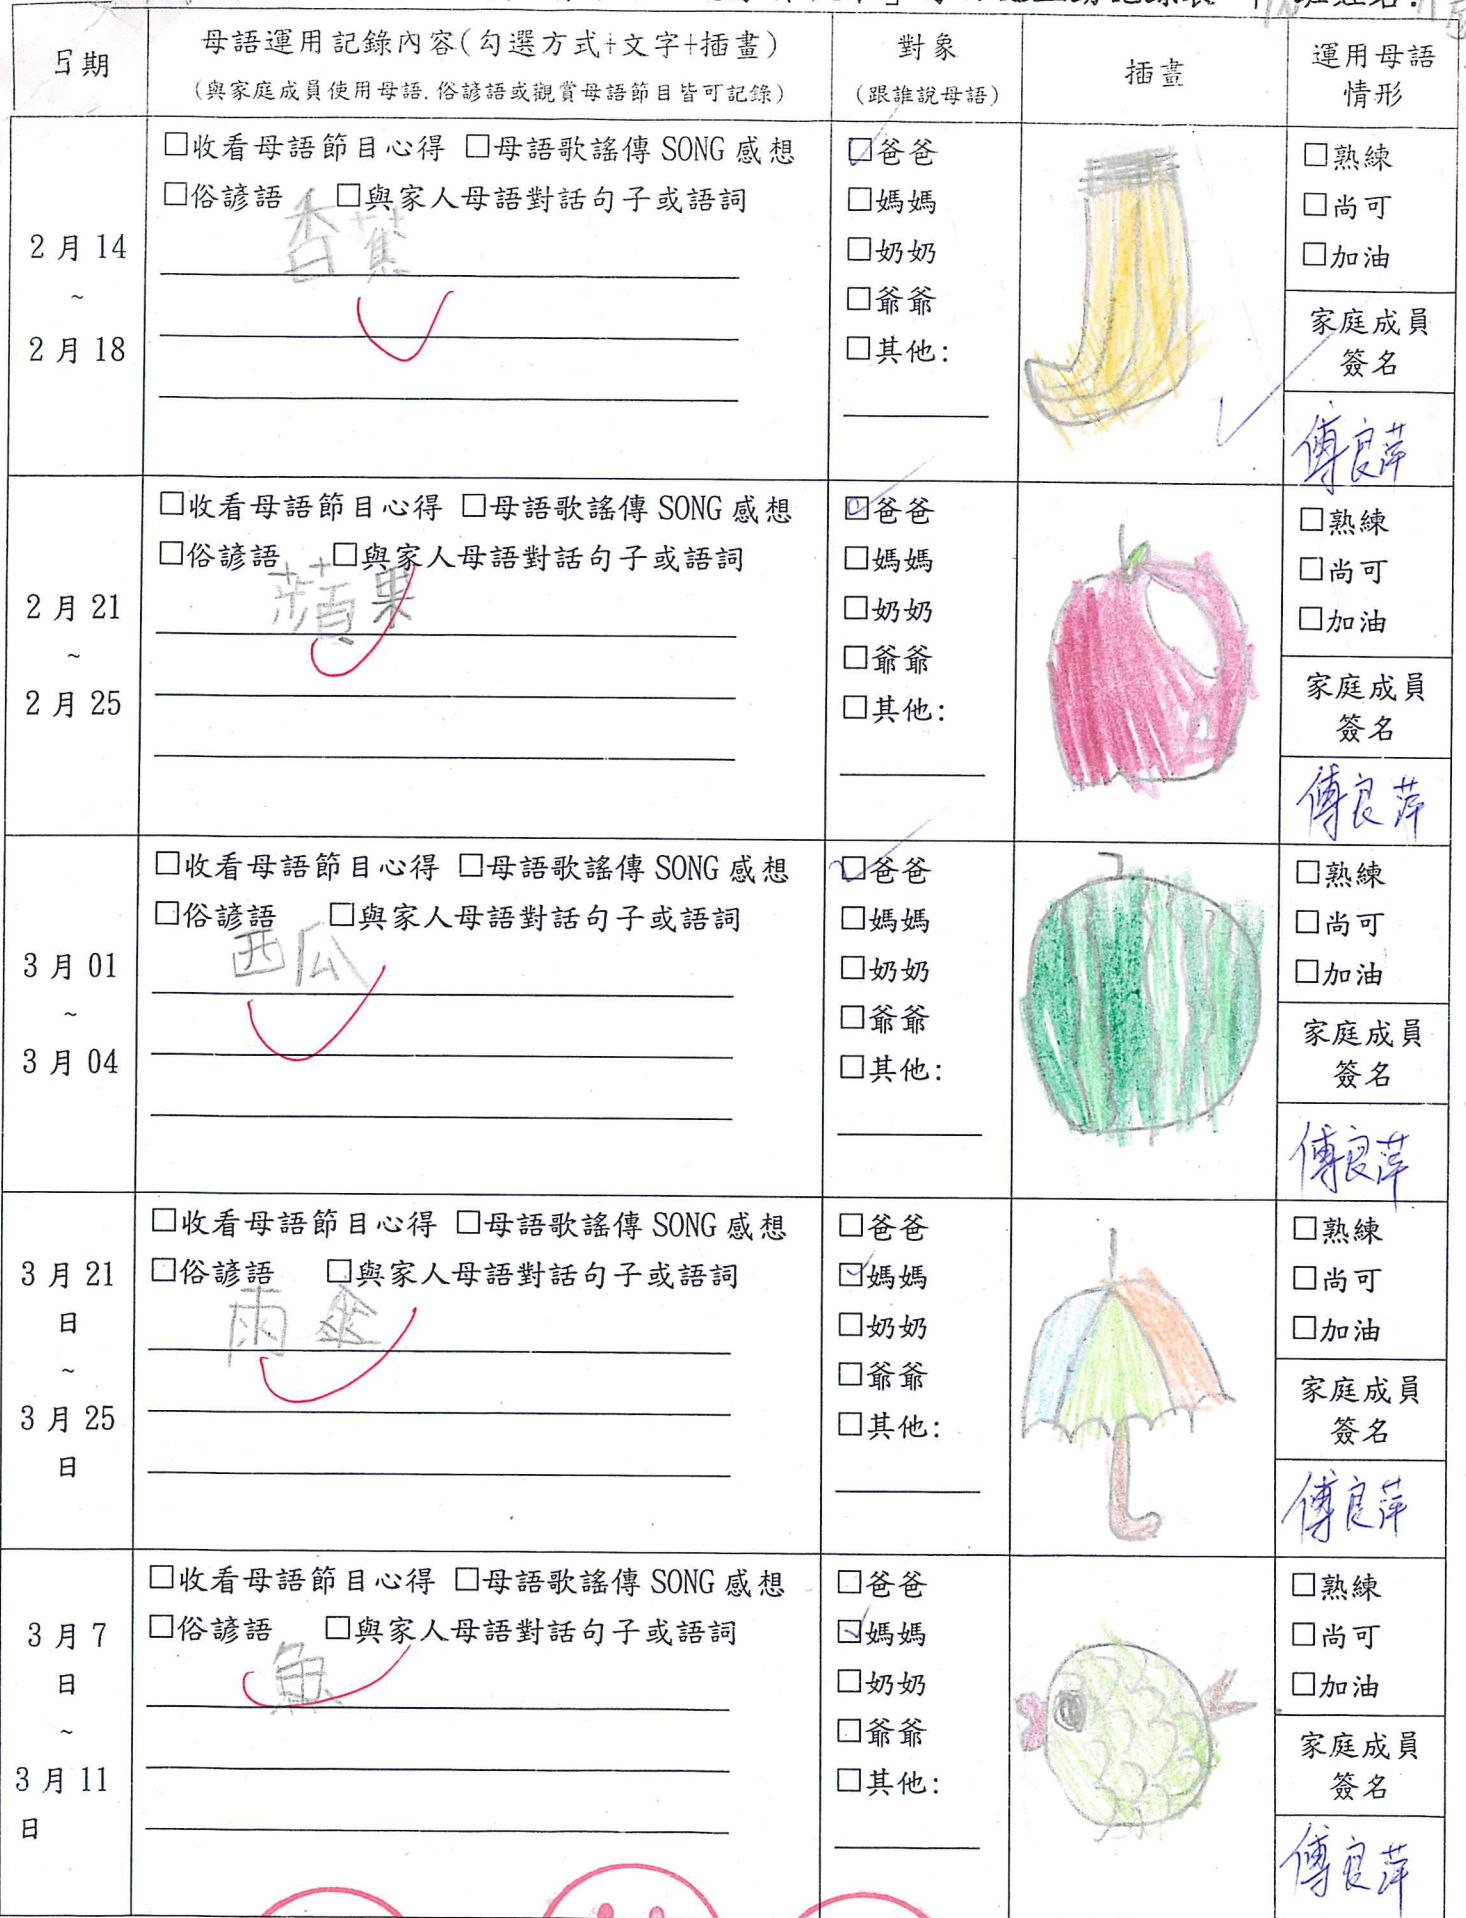 日期
母語運用記錄內容(勾選方式+文字+插畫)
(與家庭成員使用母語.俗諺語或觀賞母語節目皆可記錄)
對象
(跟誰說母語)
插畫
運用母語
情形
2月14
~
2月18
□收看母語節目心得 □母語歌謠傳 SONG 感想
□俗諺語 □與家人母語對話句子或語詞
香蕉
□爸爸
□媽媽
□奶奶
□爺爺
□其他:
□熟練
□尚可
□加油
家庭成員
簽名
傅良萍
2月21
~
2月25
□收看母語節目心得 □母語歌謠傳 SONG 感想
□俗諺語 □與家人母語對話句子或語詞
蘋果
□爸爸
□媽媽
□奶奶
□爺爺
□其他:
□熟練
□尚可
□加油
家庭成員
簽名
傅良萍
3月01
~
3月04
□收看母語節目心得 □母語歌謠傳 SONG 感想
□俗諺語 □與家人母語對話句子或語詞
西瓜
□爸爸
□媽媽
□奶奶
□爺爺
□其他:
□熟練
□尚可
□加油
家庭成員
簽名
傅良萍
3月21
日
~
3月25
日
□收看母語節目心得 □母語歌謠傳 SONG 感想
□俗諺語 □與家人母語對話句子或語詞
雨傘
□爸爸
□媽媽
□奶奶
□爺爺
□其他:
□熟練
□尚可
□加油
家庭成員
簽名
傅良萍
3月7
日
~
3月11
日
□收看母語節目心得 □母語歌謠傳 SONG 感想
□俗諺語 □與家人母語對話句子或語詞
魚
□爸爸
□媽媽
□奶奶
□爺爺
□其他:
□熟練
□尚可
□加油
家庭成員
簽名
傅良萍